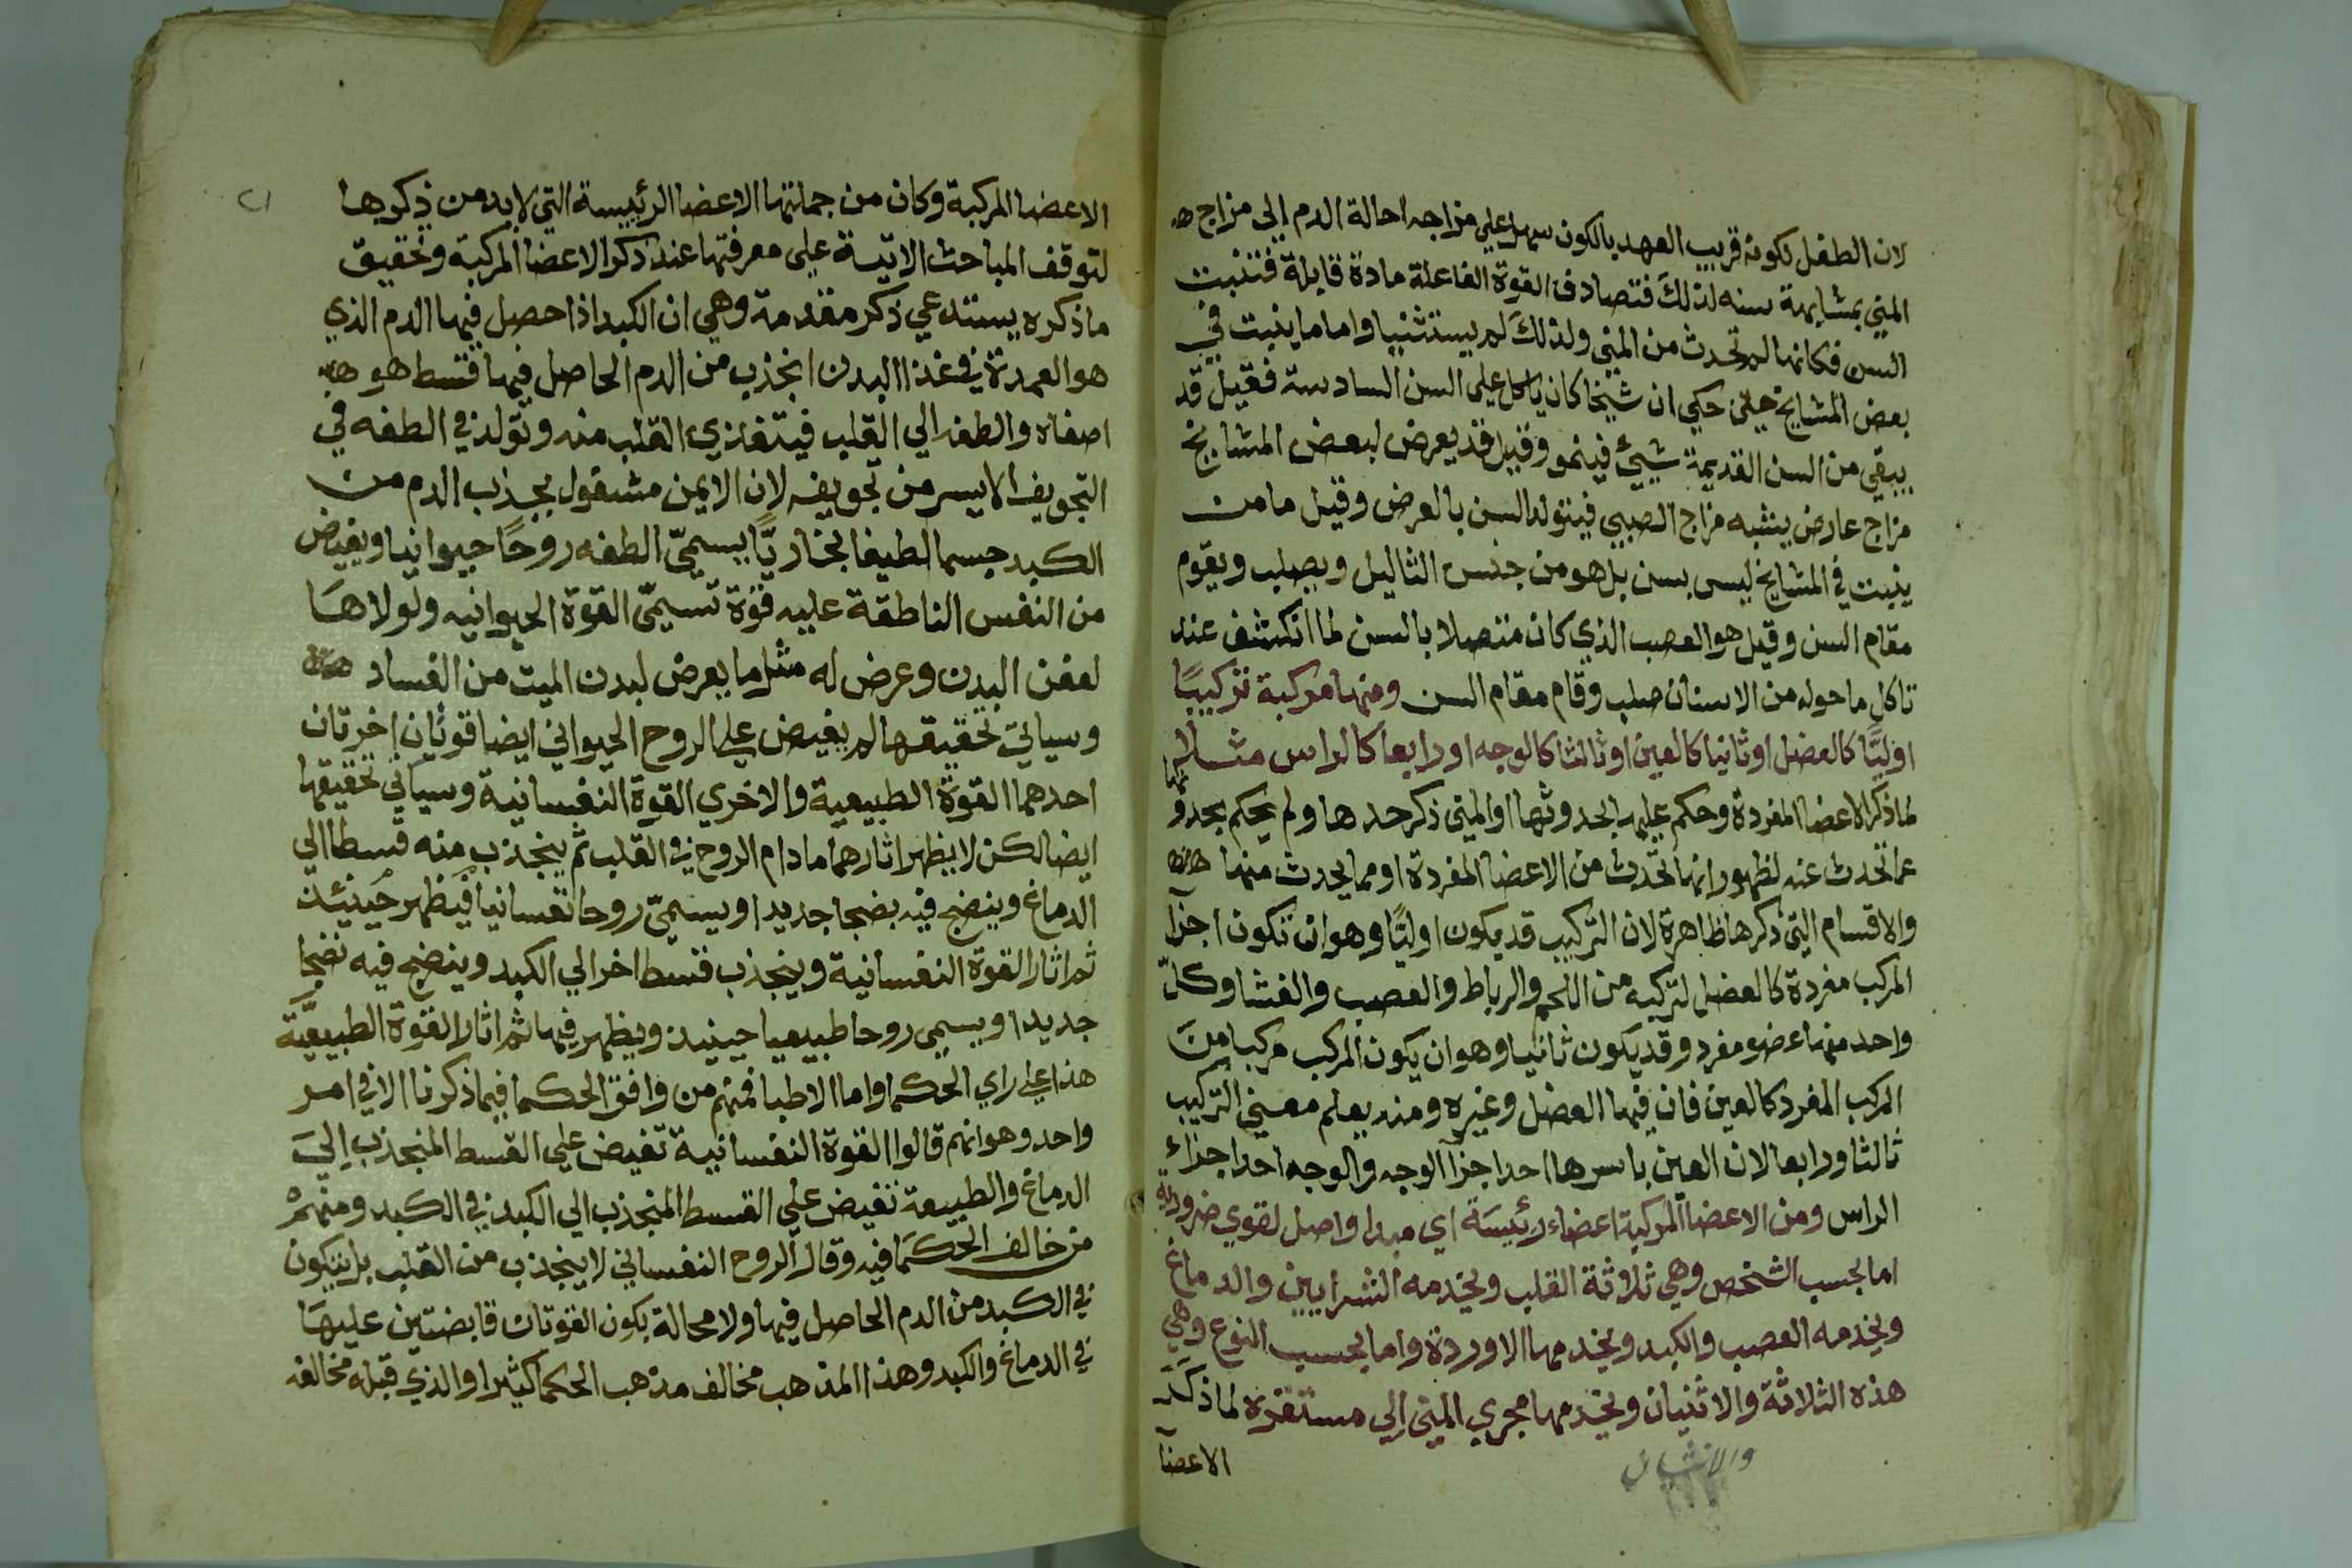 لان الطفل لكونه قريب العهد بالكون سهل علي مزاجه احالة الدم إلى مزاج
المني بمشابهة سنه لذلك فتصادف القوة الفاعلة مادة قابلة فتنبت
السن فكانها لم تحدث من المني ولذلك لم يستثنيا واما ما ينبت في
بعض المشايخ حكي ان شيخا كان ياكل علي السن السادسة فقيل قد
يبقي من السن القديمة شيئ فينمو وقيل قد يعرض لبعض المشايخ
مزاج عارض يشبه مزاج الصبي فيتولد السن بالعرض وقيل ما من
ينبت في المشايخ ليس بسن بل هو من جنس الثاليل ويصلب ويقوم
مقام السن وقيل هو العصب الذي كان متصلا بالسن لما انكشف عند
تاكل ما حوله من الاسنان صلب وقام مقام السن ومنها مركبة تركيبًا
اوليًا كالعضل اوثانيا كالعين اوثالثا كالوجه اورابعا كالراس مثلا
لما ذكر الاعضا المفردة وحكم عليها بالحدوثها اوالمني ذكر حدها ولم يحكم بحدوثها
عما تحدث عنه لظهور انها تحدث من الاعضا المفردة اومما يحدث منها
والاقسام التي ذكرها ظاهرة لان التركيب قد يكون اوليًا وهو ان تكون اجزآ
المركب مفردة كالعضل لتركبه من اللحم والرباط والعصب والغشا وكل
واحد منها عضو مفرد وقد يكون ثانيا وهو ان يكون المركب مركبا من
المركب المفرد كالعين فان فيها العضل وغيره ومنه يعلم معني التركيب
ثالثا ورابعا لان العين باسرها احد اجزآ الوجه والوجه احد اجزاء
الراس ومن الاعضآ المركبة اعضاء رئيسة اي مبدا واصل لقوي ضرورية
اما بحسب الشخص وهي ثلاثة القلب ويخدمه الشرايين والدماغ
ويخدمه العصب والكبد ويخدمها الاوردة واما بحسب النوع وهي
هذه الثلاثة والاثنيان ويخدمها مجري المني الي مستقره لما ذكر
والانثيان
الاعضآ
٢١
الاعضا المركبة وكان من جملتها الاعضا الرئيسة التي لا بد من ذكرها
لتوقف المباحث الاتية علي معرفتها عند ذكر الاعضا المركبة وتحقيق
ما ذكره يستدعي ذكر مقدمة وهي ان الكبد اذا حصل فيها الدم الذي
هو العمدة في غذا البدن انجذب من الدم الحاصل فيها قسط هو
اصفاه والطفه الي القلب فيتغذي القلب منه وتولد في الطفه في
التجويف الايسر من تجويفه لان الايمن مشغول بجذب الدم من
الكبد جسما لطيفا بخاريًا يسميّ الطفه روحًا حيوانيا ويفيض
من النفس الناطقة عليه قوة تسميّ القوة الحيوانيه ولولاها
لعفن البدن وعرض له مثل ما يعرض لبدن الميت من الفساد
وسياتي تحقيقها ثم يفيض علي الروح الحيواني ايضا قوتان اخرتان
احدهما القوة الطبيعية والاخري القوة النفسانية وسياتي تحقيقها
ايضا لكن لا يظهر اثارهما مادام الروح في القلب ثم ينجذب منه قسطا الي
الدماغ وينضج فيه نضجا جديدا ويسميّ روحا نفسانيا فيظهر حينئذ
ثم اثار القوة النفسانية وينجذب قسط اخر الي الكبد وينضج فيه نضجا
جديدا ويسمي روحا طبيعيا حينيذ ويظهر فيها ثم اثار القوة الطبيعيّة
هذا علي راي الحكما واما الاطبا فمنهم من وافق الحكما فيما ذكرنا الا في امر
واحد وهو انهم قالوا القوة النفسانية تفيض علي القسط المنجذب إلي
الدماغ والطبيعة تفيض علي القسط المنجذب الي الكبد في الكبد ومنهم
من خالف الحكما فيه وقال الروح النفساني لا ينجذب من القلب بل يتكون
في الكبد من الدم الحاصل فيها ولا محالة يكون القوتان فايضتين عليها
في الدماغ والكبد وهذا المذهب مخالف مذهب الحكما كثيرا والذي قبله مخالفه